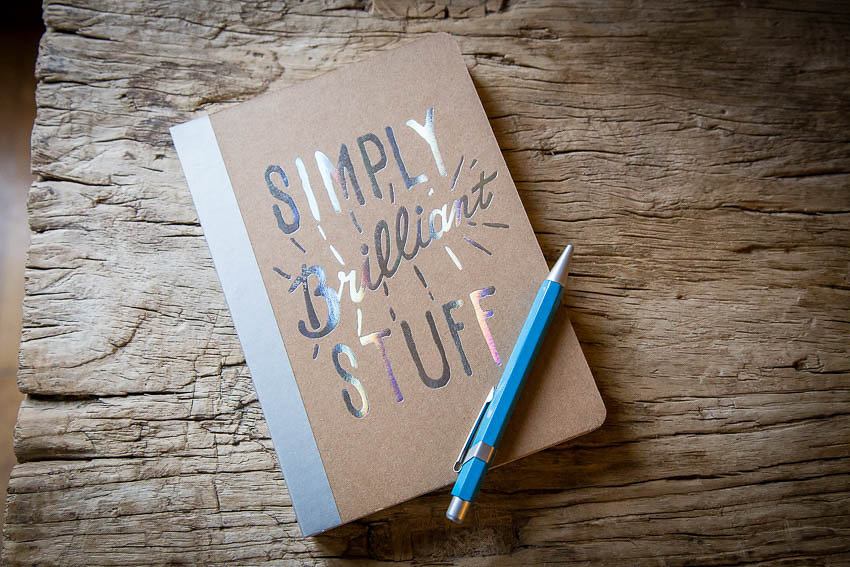 SIMPLY
Brilliant
STUFF